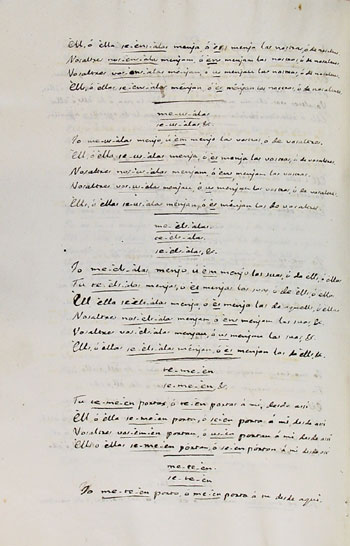 Ell, ó élla se-ens-álas menja, ó és menja las nostras, ó de nosaltres
Nosaltres nos-ens-álas menjam, ó ens menjam las nostras, ó de nosaltres.
Vosaltres vos-ens-álas menjau, ó us menjau las nostras, ó de nosaltres.
Ells, ó éllas se-ens-álas menjan, ó és menjan las nostras, ó de nosaltres
me-us-álas
se-us-álas, &.
Jo me-us-álas menjo, ú em menjo las vostras, ó de vosaltres.
Ell, ó élla se-us-álas menja, ó es menja las vostras, ó de vosaltres.
Nosaltres nos-us-álas menjam, ó ens menjam las vostras.
Vosaltres vos-us-álas menjau, ó us menjau las vostras, ó de vosaltres.
Ells, ó éllas se-us-álas menjan, ó es menjan las de vosaltres.
me-éls-álas.
te-éls-ála.
se-éls-álas, &.
Jo me-éls-álas menjo ú em menjo las suas, ó de éll, ó élla
Tu te-éls-álas menjas, ó es menjas las suas, ó de éll, ó élla
Ell ó élla se-éls-álas menja ó es menja las de aquells, ó élla
Nosaltres nos-éls-álas menjam ó ens menjam las suas, &.
Vosaltres vos-éls-álas menjau ó us menjau las suas, &.
Ells, ó éllas se-éls-álas menjan, ó es menjan las de éll, &.
te-me-én
se-me-én, &.
Tu te-me-én portas ó te-én portas á mi, desde assi
Ell, ó élla se-me-én porta, ó se-én porta á mi, desde assi
Vosaltres vos-ém-én portau, ó us-én portau á mi, desde assi
Ells ó éllas se-me-én portan, ó se-én portan á mi, desde assi
me-te-én
se-te-én
Jo me-te-én porto, ó me-én porto á tu desde aqui.